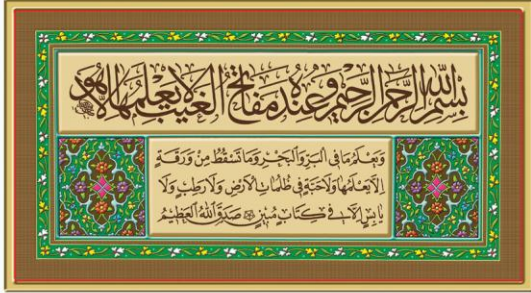 بسم الله الرحمن الرحيم وعنده مفاتح الغيب لا يعلمها إلا هو
وَيَعْلَمُ مَا فِي الْبَرِّ وَالْبَحْرِ وَمَا تَسْقُطُ مِنْ وَرَقَةٍ
إِلَّا يَعْلَمُهَا وَلَا حَبَّةٍ فِي ظُلُمَاتِ الْأَرْضِ وَلَا رَطْبٍ وَلَا
يَابِسٍ إِلَّا فِي كِتَابٍ مُبِينٍ صَدَقَ اللَّهُ الْعَظِيمُ